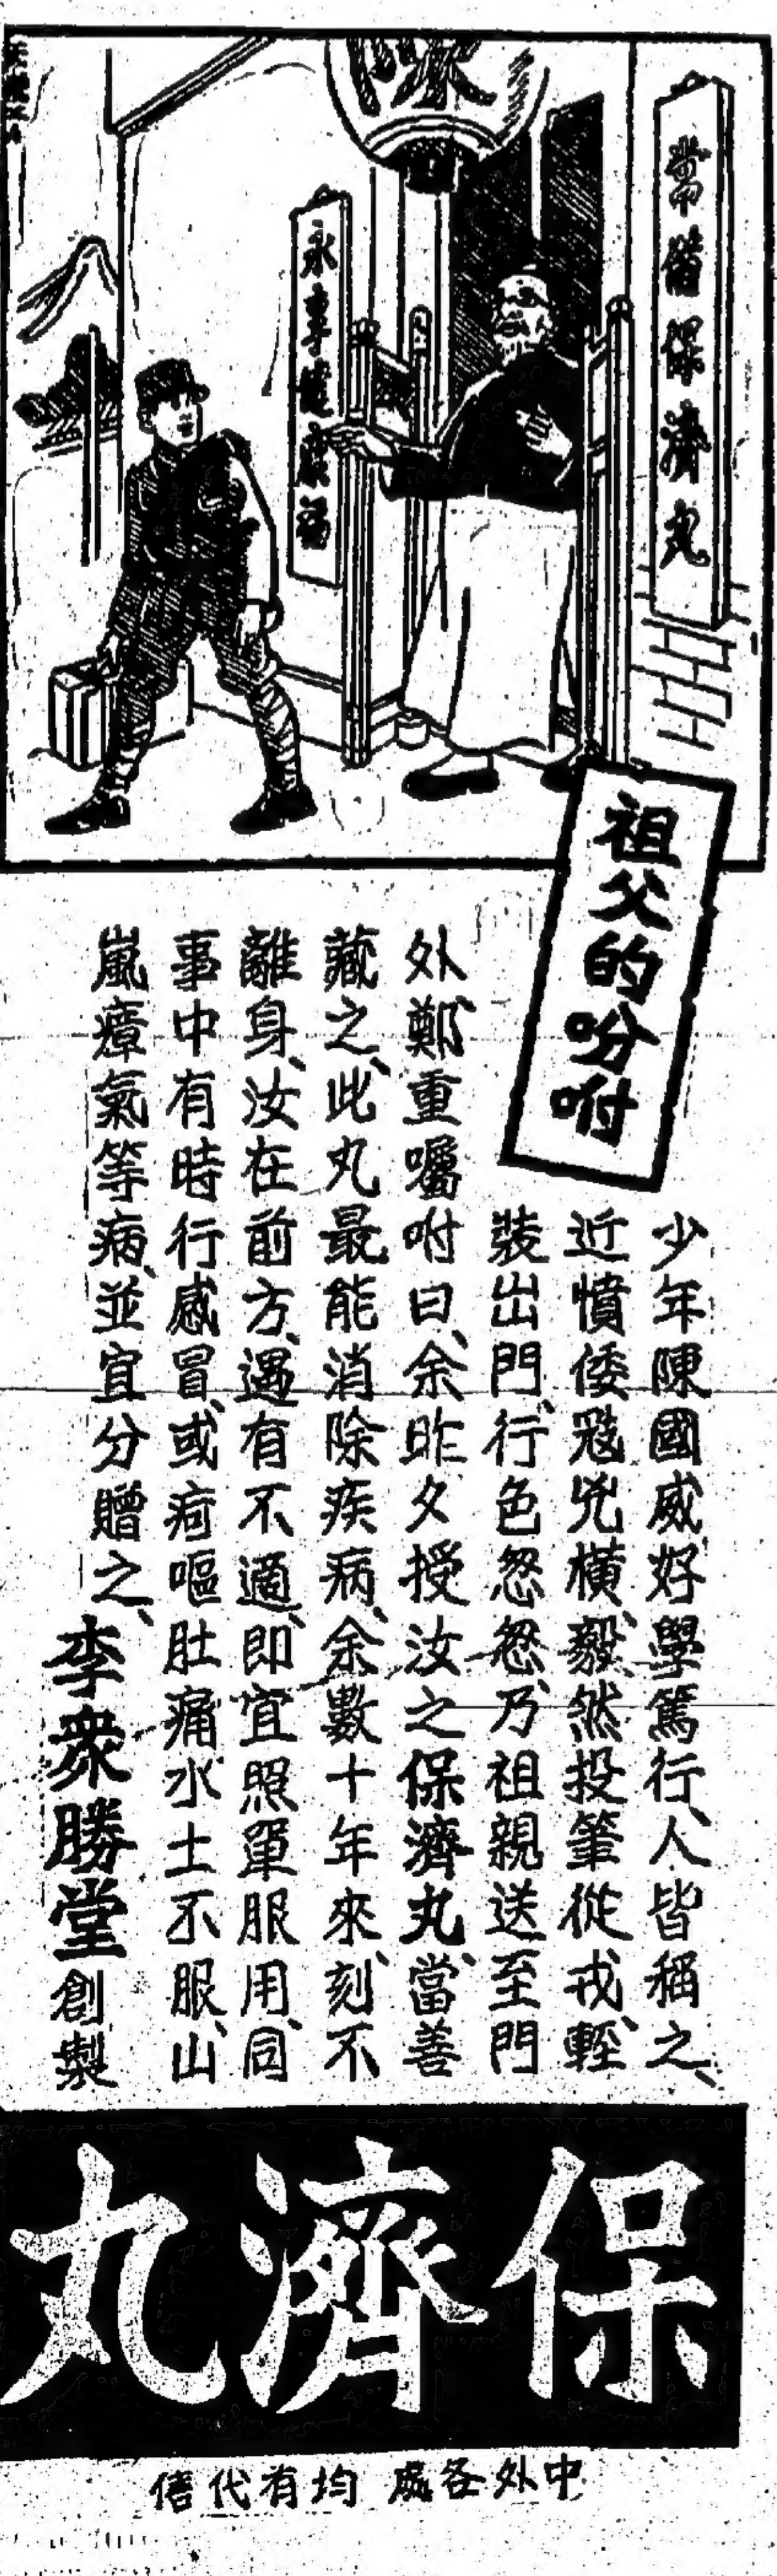 陳
常備保濟丸
永享健康福
祖父的吩咐
少年陳國威、好學篤行、人皆稱之、
近憤倭寇兇橫、毅然投筆從戎、輕
裝出門、行色怱怱、乃祖親送至門
外、鄭重囑咐曰、余昨夕授汝之保濟丸、當善
藏之、此丸最能消除疾病、余數十年來、刻不
離身、汝在前方、遇有不適、即宜照單服用、同
事中有時行感冒、或疴嘔肚痛、水土不服、山
嵐瘴氣等病、並宜分贈之、
李衆勝堂創製
保濟丸
中外各處均有代售